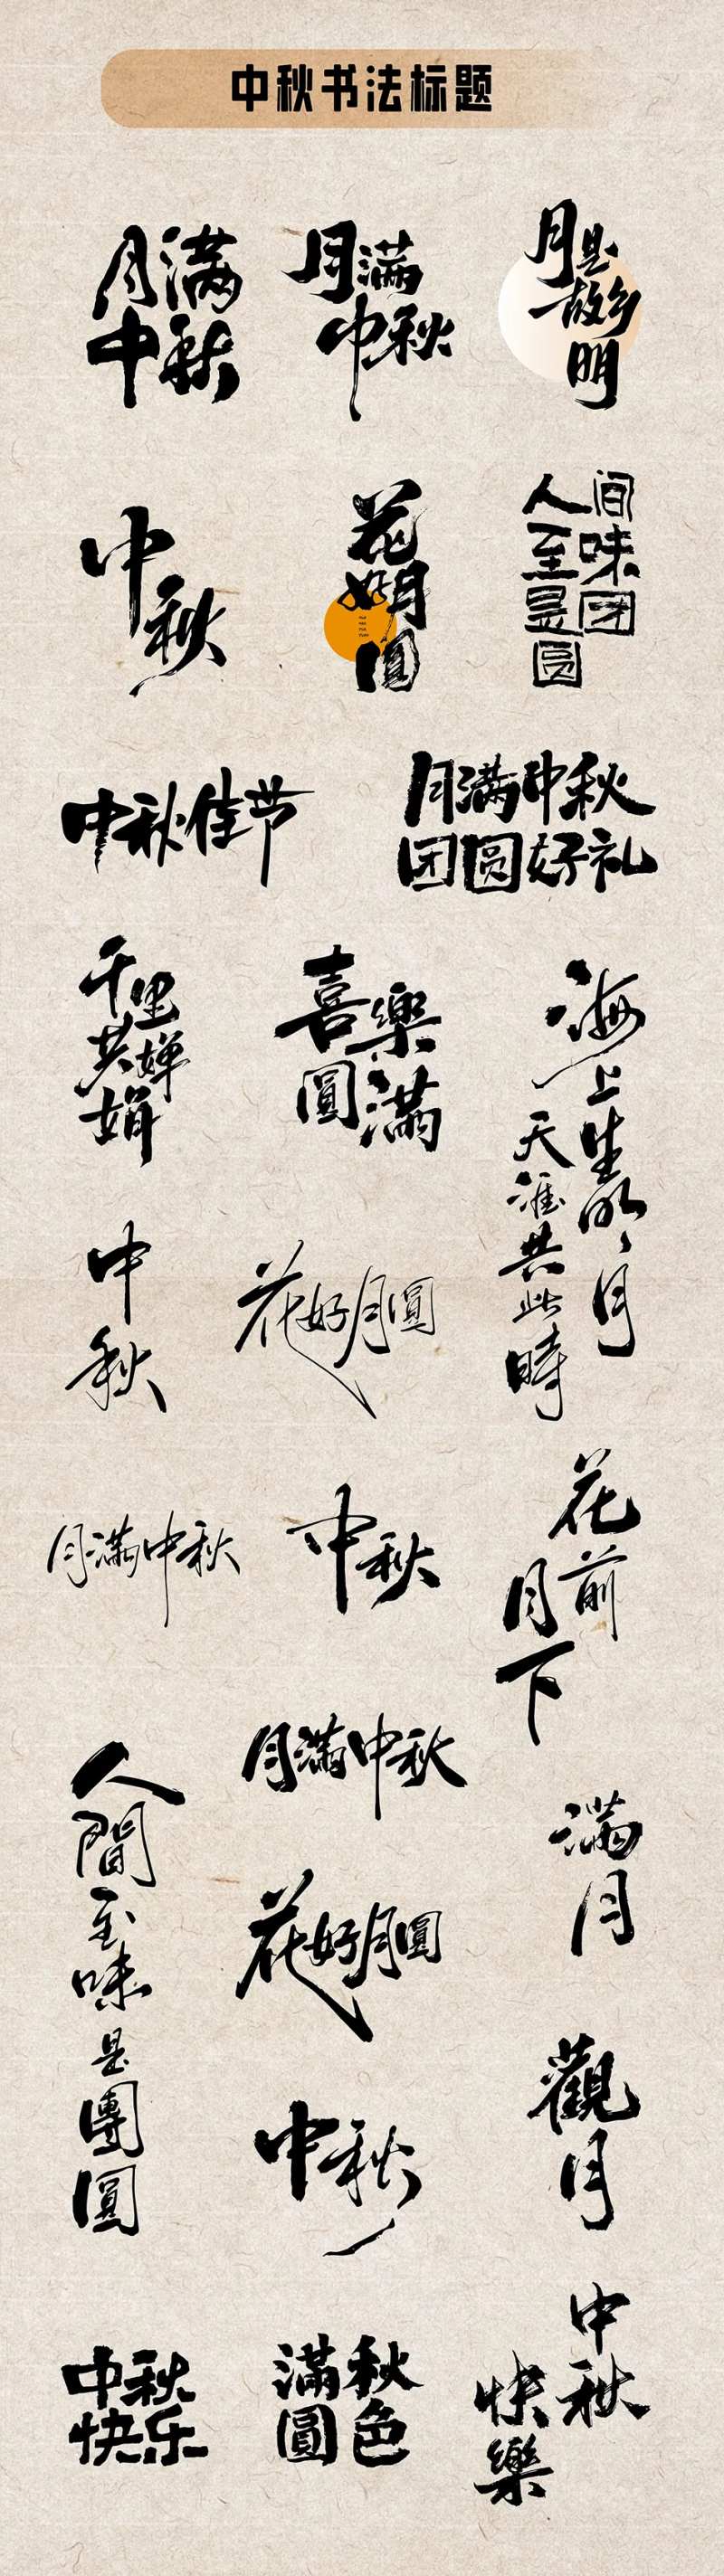 中秋书法标题
月满
中秋
月满
中秋
月是
故乡
明
中
秋
花
好月
圓
人间
至味
是团
圆
中秋佳节
月满中秋
团圆好礼
千里
共婵
娟
喜樂
圓滿
海上生明月
天涯共此時
中
秋
花好月圓
月满中秋
中秋
花前
月下
人間至味是團圓
月满中秋
满月
花好月圓
觀月
中秋
中秋
快乐
秋色
滿圓
中秋
快樂